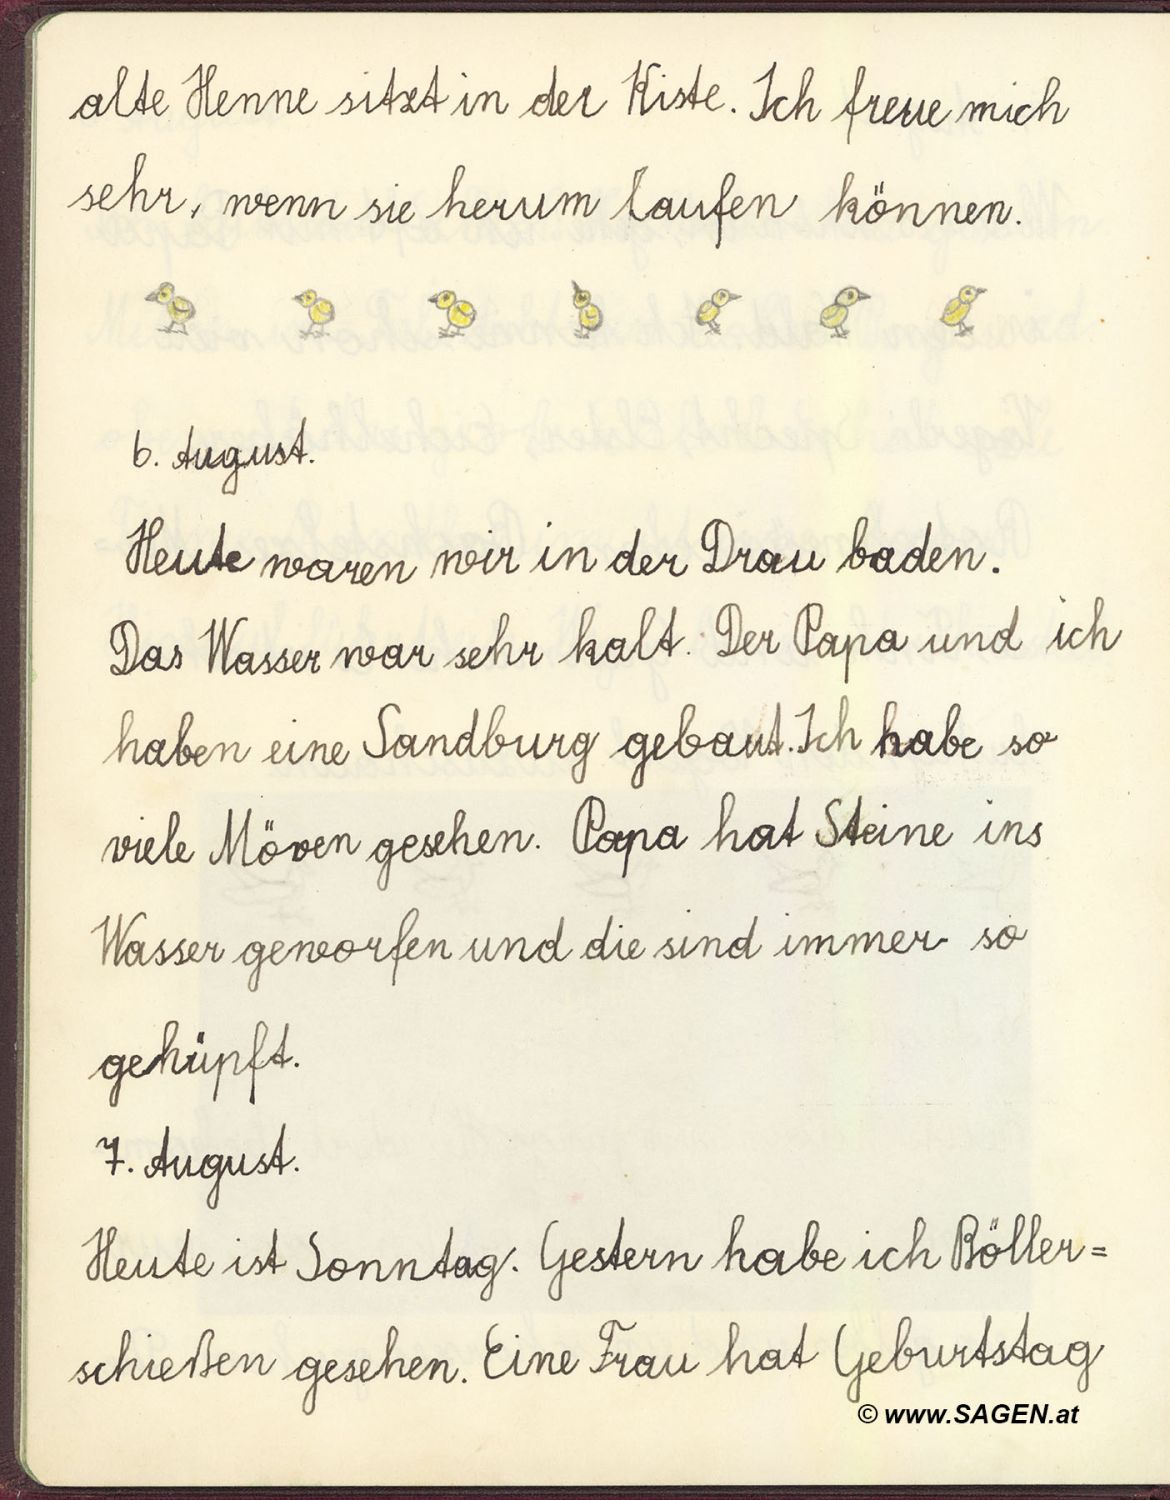 alte Henne sitzt in der Kiste. Ich freue mich
sehr, wenn sie herum laufen können.
6. August.
Heute waren wir in der Drau baden.
Das Wasser war sehr kalt. Der Papa und ich
haben eine Sandburg gebaut. Ich habe so
viele Möven gesehen. Papa hat Steine ins
Wasser geworfen und die sind immer so
gehüpft.
7. August.
Heute ist Sonntag. Gestern habe ich Böller=
schießen gesehen. Eine Frau hat Geburtstag
© www.SAGEN.at